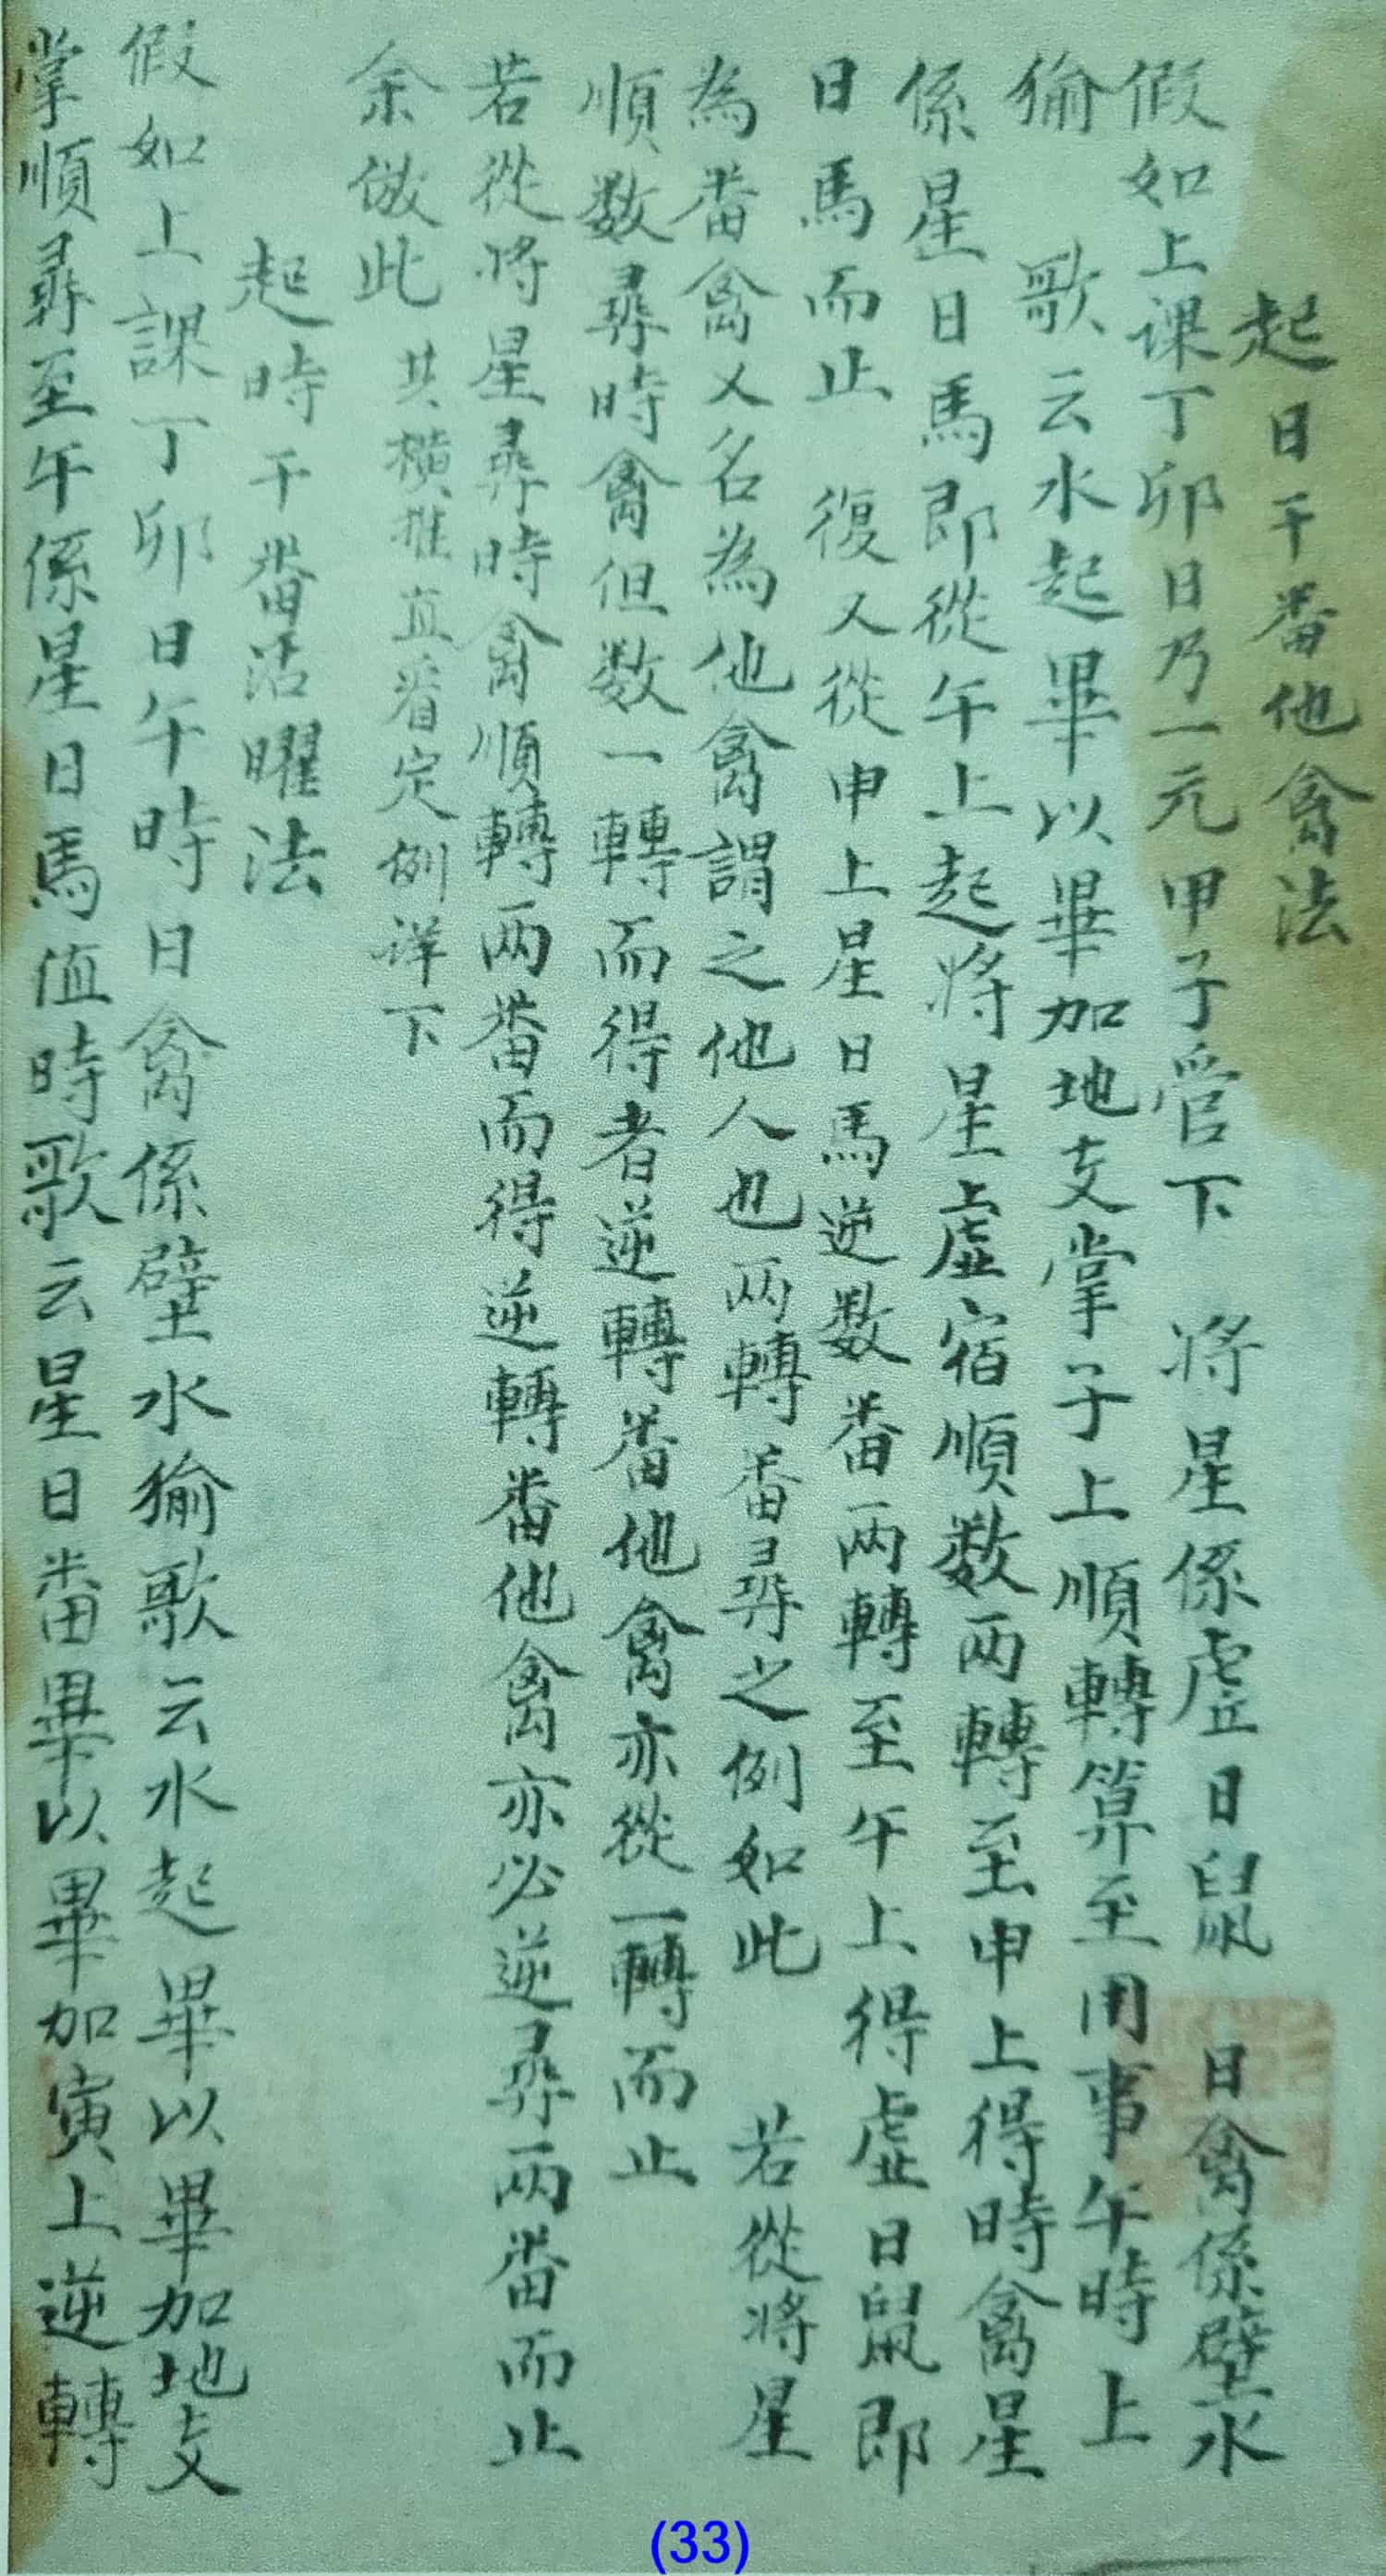 起日干畨他禽法
假如上课丁卯日乃一元甲子管下 将星係虚日鼠 日禽係壁水
㺄 歌云水起畢以畢加地支掌子上順轉算至用事午時上
係星日馬即從午上起将星上虚宿順数两轉至申上得時禽星
日馬而止 復又從申上星日馬逆数畨两轉至午上得虚日鼠即
為畨禽又名為他禽謂之他人也两轉畨尋之例如此 若從将星
順数尋時禽但数一轉而得者逆轉畨他禽亦從一轉而止
若從将星尋時禽順轉两畨而得逆轉畨他禽亦必逆尋两畨而止
余倣此 其橫推直看定例详下
起時干畨活曜法
假如上課丁卯日午時日禽係壁水㺄歌云水起畢以畢加地支
掌順尋至午係星日馬值時歌云星日畨畢以畢加寅上逆轉
(33)